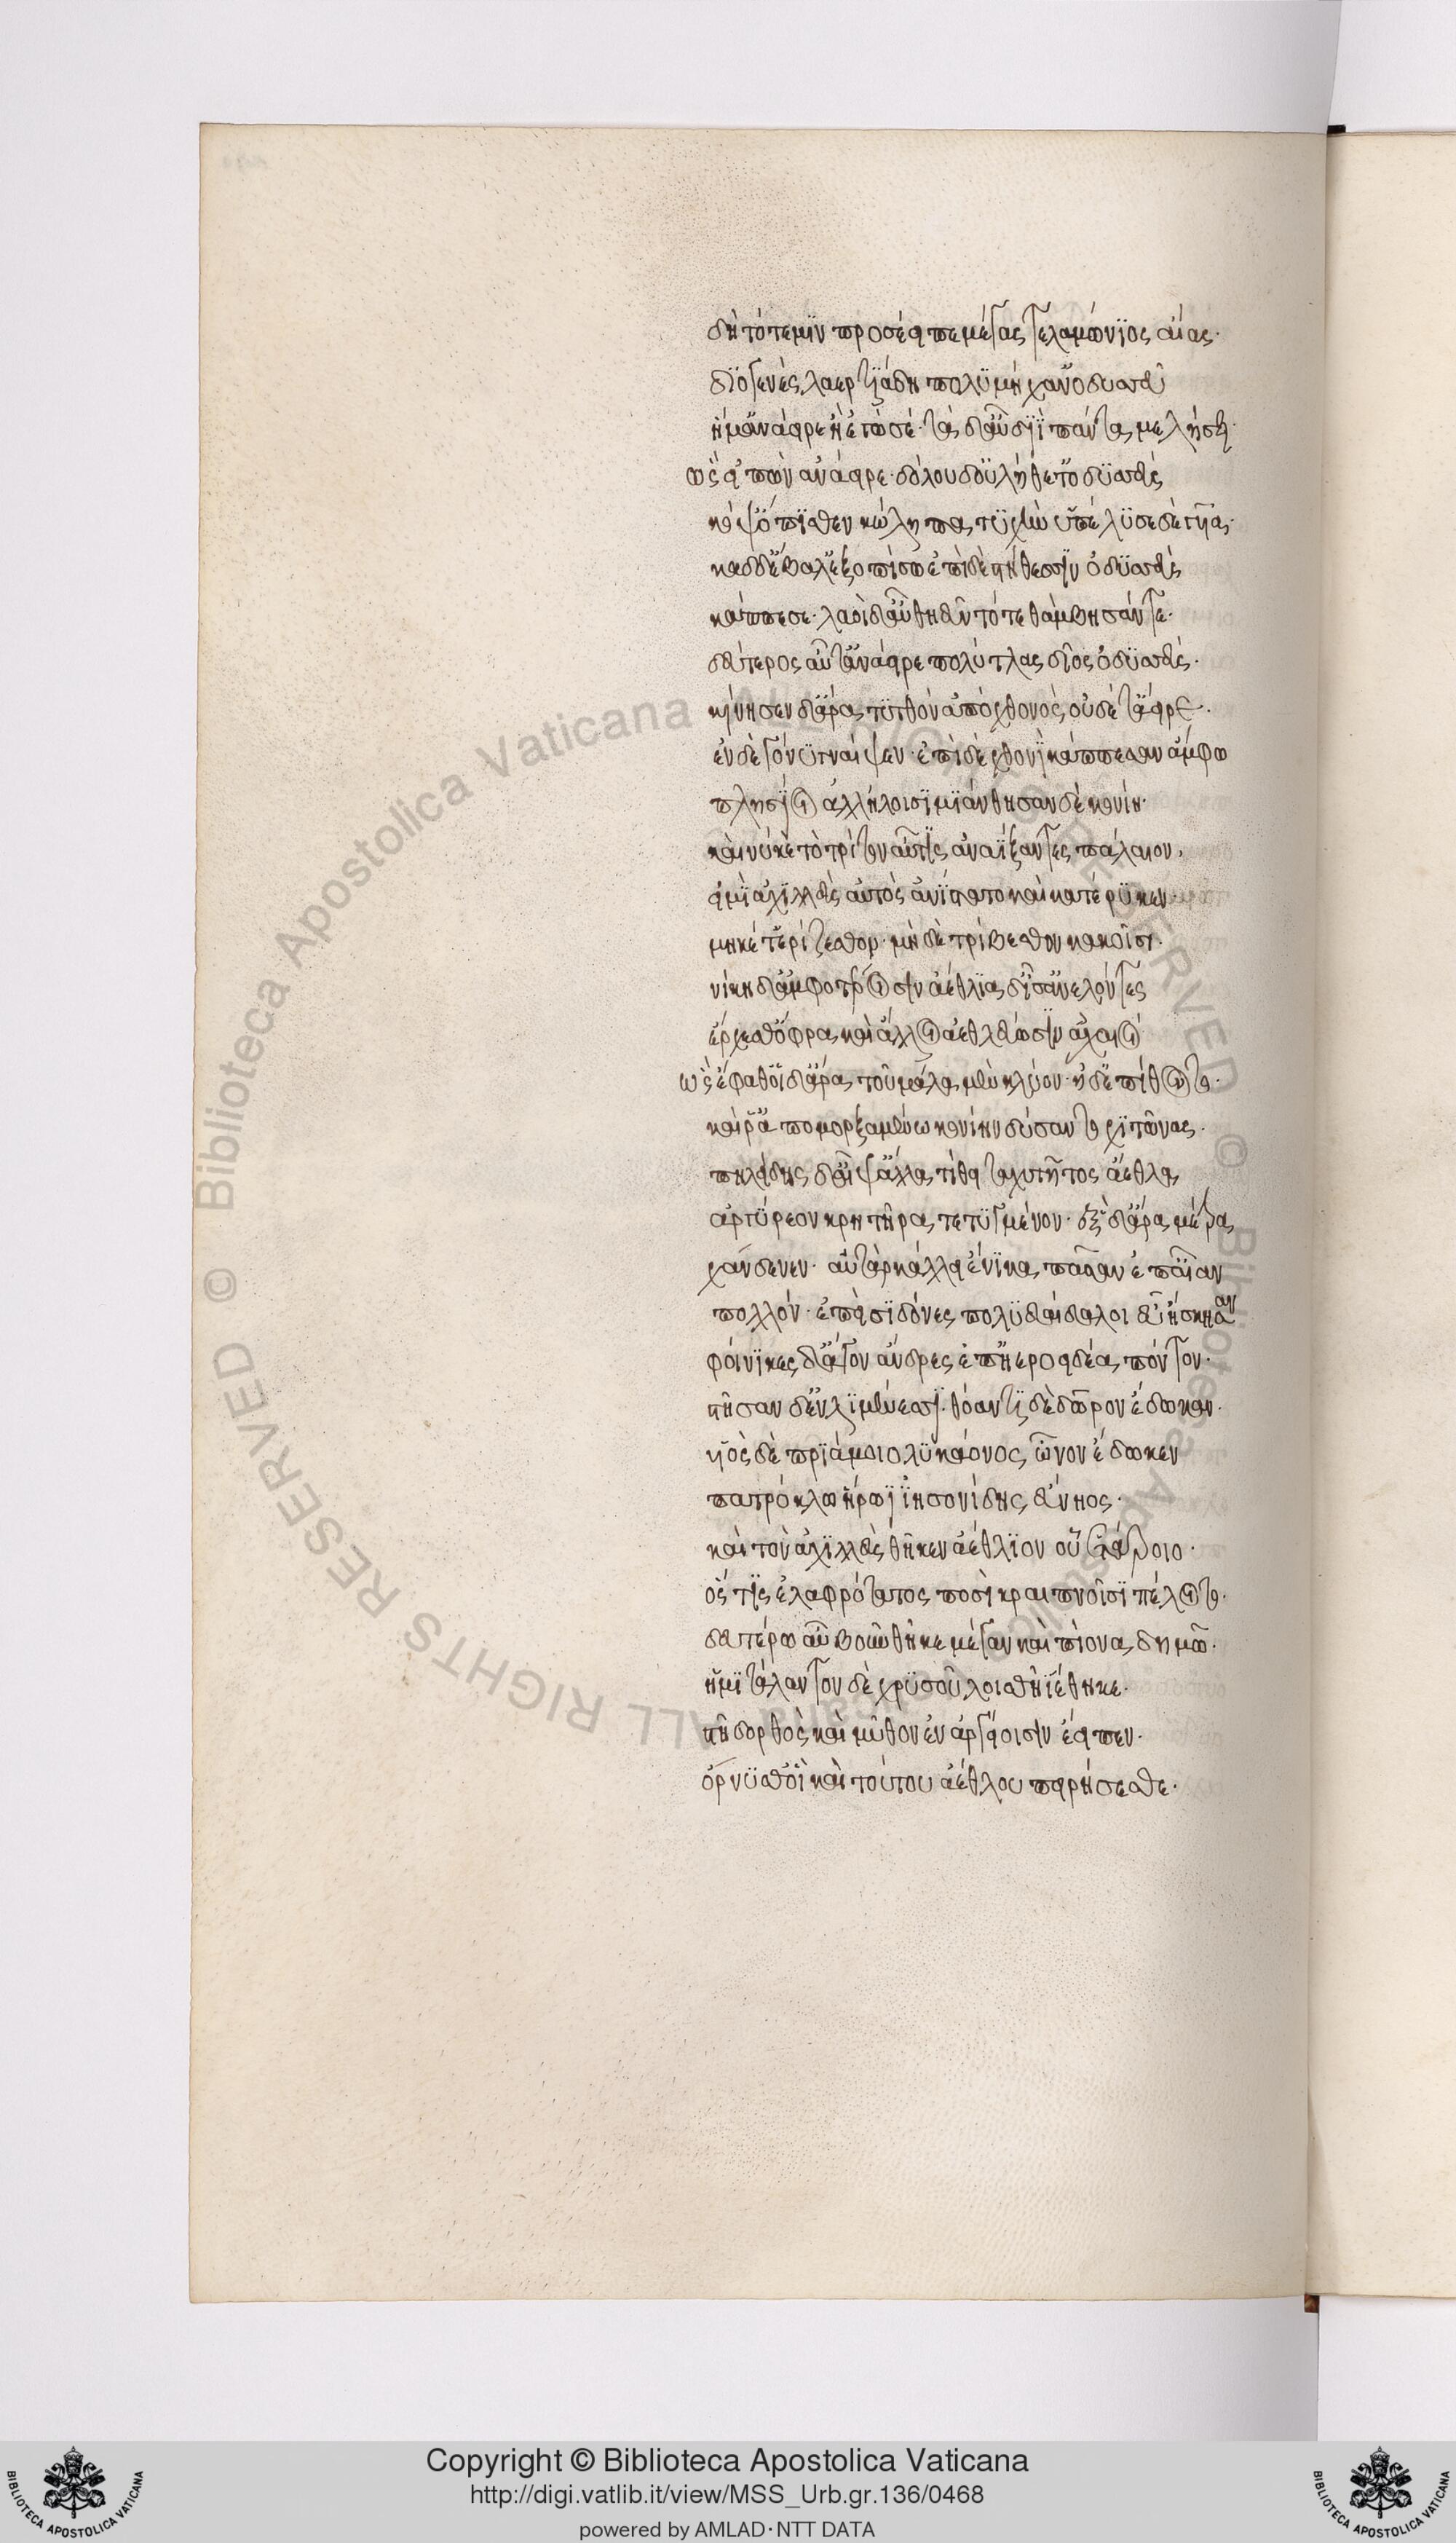 δὴ τότε μιν προσέειπε μέγας τελαμώνιος αἴας·
διογενὲς λαερτιάδη πολυμήχαν' ὀδυσσεῦ
ἤ μ' ἀνάειρ' ἢ ἐγὼ σέ· τὰ δ' αὖ διὶ πάντα μελήσει·
ὣς εἰπὼν ἀνάειρε· δόλου δ' οὐ λήθετ' ὀδυσσεύς
κόψ' ὄπιθεν κώληπα τυχὼν ὑπέλυσε δὲ γυῖα·
καδδ' ἔβαλ' ἐξοπίσω ἐπὶ δὲ στήθεσσιν ὀδυσσεύς
κάππεσε· λαοὶ δ' αὖ θηεῦντό τε θάμβησάν τε·
δεύτερος αὖτ' ἀνάειρε πολύτλας δῖος ὀδυσσεύς·
κίνησεν δ' ἄρα τυτθὸν ἀπὸ χθονός, οὐδέ τ' ἄειρεν·
ἐν δὲ γόνυ γνάμψεν· ἐπὶ δὲ χθονὶ κάππεσον ἄμφω
πλησίοι ἀλλήλοισι μιάνθησαν δὲ κονίη·
καί νύ κε τὸ τρίτον αὖτις ἀναΐξαντες πάλαιον,
εἰ μὴ ἀχιλλεὺς αὐτὸς ἀνίστατο καὶ κατέρυκεν·
μηκέτ' ἐρίζεσθον· μὴ δὲ τρίβεσθον κακοῖσι·
νίκη δ' ἀμφοτέροισιν ἀέθλια δ' ἶσ' ἀνελόντες
ἔρχεσθ' ὄφρα καὶ ἄλλοι ἀεθλεύωσιν ἀχαιοί
ὣς ἔφαθ' οἱ δ' ἄρα τοῦ μάλα μὲν κλύον· ἠδ' ἐπίθοντο·
καί ῥ' ἀπομορξαμένω κονίην δύσαντο χιτῶνας·
πηλείδης δ' αἶψ' ἄλλα τίθει ταχυτῆτος ἄεθλα
ἀργύρεον κρητῆρα τετυγμένον· ἓξ δ' ἄρα μέτρα
χάνδανεν· αὐτὰρ κάλλει ἐνίκα πᾶσαν ἐπ' αἶαν
πολλόν· ἐπεὶ σιδόνες πολυδαίδαλοι εὖ ἤσκησαν
φοίνικες δ' ἄγον ἄνδρες ἐπ' ἠεροειδέα πόντον·
στῆσαν δ' ἐν λιμένεσσι· θόαντι δὲ δῶρον ἔδωκαν·
υἷος δὲ πριάμοιο λυκάονος ὦνον ἔδωκεν
πατρόκλω ἥρωϊ ἰησονίδης εὔνηος·
καὶ τὸν ἀχιλλεὺς θῆκεν ἀέθλιον οὗ ἑτάροιο·
ὅς τις ἐλαφρότατος ποσὶ κραιπνοῖσι πέλοιτο·
δευτέρω αὖ βοῦν θῆκε μέγαν καὶ πίονα δημῶ·
ἡμιτάλαντον δὲ χρυσοῦ λοισθήϊ' ἔθηκε·
στῆ δ' ὀρθὸς καὶ μῦθον ἐν ἀργείοισιν ἔειπεν·
ὄρνυσθ' οἳ καὶ τούτου ἀέθλου πειρήσεσθε·